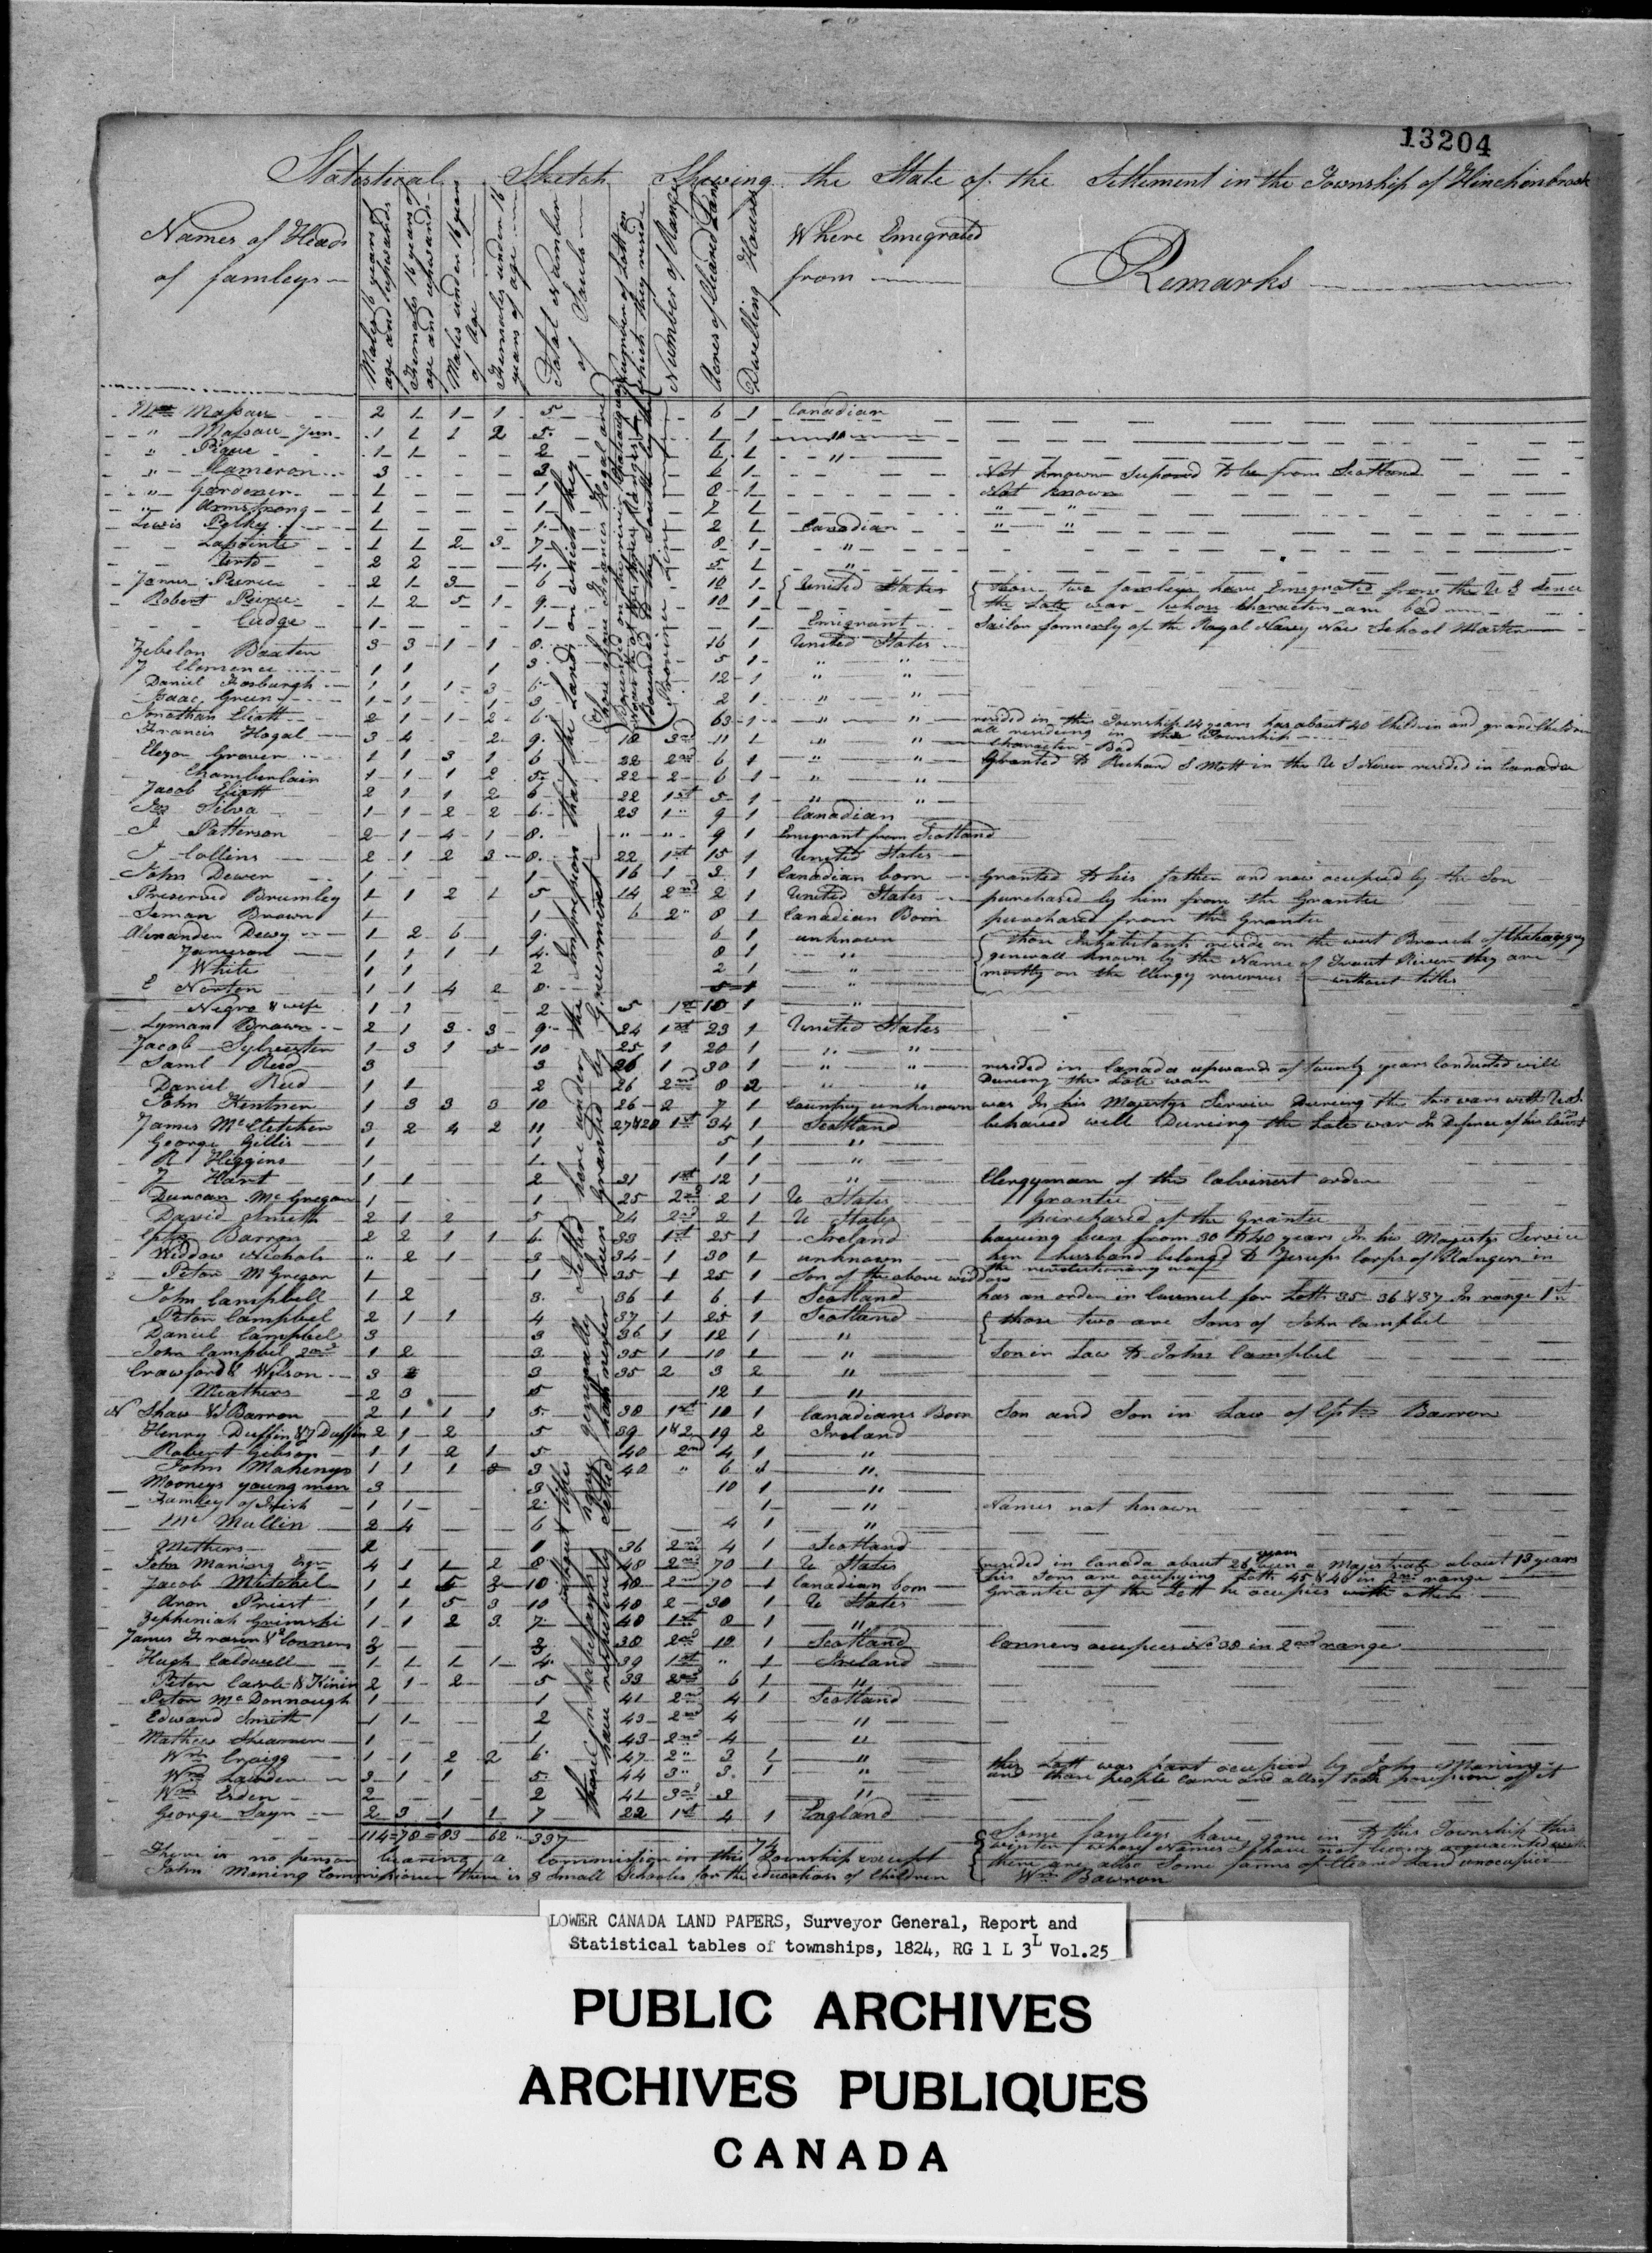 13204
Statistical Sketch Shewing the State of the Settlement in the Township of Hinchinbrook
Names of Heads of famleys
Males 16 years of age and upwards
Females 16 years of age and upwards
Males under 16 years of age
Females under 16 years of age
Total Number of Souls
Number of Lott on which they reside
Number of Range
Acres of Cleared Land
Dwelling Houses
Where Emigrated from
Remarks
Massau 2 1 1 1 5 6 1 Canadian
" Massau Jun 1 1 1 2 5 1 1 "
" 1 1 2 6 1 "
" Cameron 3 3 6 1 Not known Suposed to be from Scotland
" Gardener 1 1 8 1 Not known
" Armstrong 1 1 7 1 " "
Lewis Pelky 1 1 2 1 Canadian " "
Lapointe 1 1 2 3 7 8 1 "
2 2 4 5 1 "
James Pierce 2 1 3 6 10 1 { United States { those two famleys have Emigrated from the U S Since
Robert Pierce 1 2 5 1 9 10 1 the Late war whose Characters are bad
Cudge 1 1 1 Emigrant Sailor formerly of the Royal Navey Now School Master
Zebelon Baxter 3 3 1 1 8 16 1 United States
J Clemence 1 1 1 3 5 1 " "
Daniel 1 1 1 3 6 12 1 " "
Isaac Green 1 1 1 3 2 1 " "
Jonathan Eliott 2 1 1 2 6 63 1 " " resided in this Township 24 years has about 40 Children and grand Children
all resideing in the Township
Francis Hogal 3 4 2 9 18 3rd 11 1 " " Character Bad
Grover 1 1 3 1 6 22 2nd 6 1 " " Granted to Richard S Mott in the U S Never resided in Canada
Chamberlain 1 1 1 2 5 22 2 6 1 " "
Jacob Eliott 2 1 1 2 6 22 1st 5 1 " "
Silva 1 1 2 2 6 23 1 " 9 1 Canadian
J Patterson 2 1 4 1 8 " " 9 1 Emigrant from Scotland
J Collins 2 1 2 3 8 22 1st 15 1 United States
John Dewer 1 1 16 1 3 1 Canadian born Granted to his father and now occupied by the Son
Preserved Brumley 1 1 2 1 5 14 2nd 2 1 United States purchased by him from the Grantee
Seman Brown 1 1 6 2 " 8 1 Canadian Born purchased from the Grantee
Alexander Dewy 1 2 6 9 6 1 unknown { those Inhabitants reside on the west Branch of Chatauguy
Jameson 1 1 1 1 4 8 1 " generall known by the Name of Trout River they are
White 1 1 2 2 1 " mostly on the Clergy reserves without titles
E Norton 1 1 4 2 8 5 1 "
Negro & wife 1 1 2 5 1st 10 1 "
Lyman Brown 2 1 3 3 9 24 1st 23 1 United States
Jacob Sylvester 1 3 1 5 10 25 1 20 1 " "
Saml Reed 3 3 26 1 30 1 " " resided in Canada upwards of twenty years Conducted will
Daniel Reed 1 1 2 26 2nd 8 2 " " Dureing the Late war
John Hentner 1 3 3 3 10 26 2 7 1 Country unknown was In his Majestys Service Dureing the two wars with U S
James McCletchen 3 2 4 2 11 27 & 28 1st 34 1 Scotland behaved well Dureing the Late war In Defence of his Count
George Gillis 1 1 5 1 "
R Higgins 1 1 1 1 "
J Hart 1 1 2 31 1st 12 1 " Clergyman of the Calvinest order
Duncan McGregor 1 1 25 2nd 2 1 U States Grantee
David Smith 2 1 2 5 24 2nd 2 1 U States purchased of the Grantee
Cptn Barron 2 2 1 1 6 33 1st 25 1 Ireland haveing been from 30 to 40 years In his Majestys Service
Widdow Nichols " 2 1 3 34 1 30 1 unknown her husband belonged to Jesups Corps of Rangers in
the revolutionary war
Peter McGregor 1 1 35 1 25 1 Son of the above widdow
John Campbell 1 2 3 36 1 6 1 Scotland has an order in Council for Lotts 35 36 & 37 In range 1st
Peter Campbel 2 1 1 4 37 1 25 1 Scotland { those two are Sons of John Campbel
Daniel Campbel 3 3 36 1 12 1 "
John Campbel 2nd 1 2 3 35 1 10 1 " Son in Law to John Campbel
Crawford & Wilson 3 3 35 2 3 2 "
Meathers 2 3 5 12 1 "
N Shaw & J Barron 2 1 1 1 5 38 1st 10 1 Canadians Born Son and Son in Law of Cptn Barron
Henry Duffin & J Duffin 2 1 2 5 39 1 & 2 19 2 Ireland
Robert Gibson 1 1 2 1 5 40 2nd 4 1 "
John Mahenys 1 1 1 3 40 " 6 1 "
Mooneys young men 3 3 10 1 "
Famley of Irish 1 1 2 1 " Names not known
McMullin 2 4 6 4 1 "
Mathers 2 1 36 2nd 4 1 Scotland
John Maning Esqr 4 1 1 2 8 48 2nd 70 1 U States { resided in Canada about 26 years been a Majistrate about 13 years
his Sons are occupying Lotts 45 & 46 in 2nd range
Jacob Mitchel 1 1 5 3 10 48 2nd 70 1 Canadian born Grantee of the Lott he occupies with others
Aron Priest 1 1 5 3 10 40 2 30 1 U States
Zephiniah 1 1 2 3 7 40 1st 8 1 "
James Frasier & Conners 3 3 38 2nd 12 1 Scotland Conners occupies No 38 in 2nd range
Hugh Caldwell 1 1 1 1 4 39 1st " 1 Ireland
Peter & 2 1 2 5 33 2nd 6 1 "
Peter McDonnough 1 1 41 2nd 4 1 Scotland
Edward Smith 1 1 2 43 2nd 4 "
Mathew 1 1 43 2nd 4 "
Wm Craigg 1 1 2 2 6 47 2 " 3 1 "
Wm 3 1 1 5 44 3 " 3 1 " this Lott was part occupied by John Maning
and those people came and allso took possession off it
Wm Erden 2 2 41 3rd 3 "
George Sayr 2 3 1 1 7 22 1st 4 1 England
114 = 78 = 83 62 " 337 74
those Inhabitants generally Settled here under the Impression that the Lands on which they
have respectively Settled hath never been Granted by Goverment
There is no person bearing a Commission in this Township except
John Maning Commissioner there is 3 Small Schooles for the education of Children
{ Some famleys have gone in to this Township this
winter whose Names I have not become acquainted with
there are also Some farms of Cleared Land unoccupied
Wm Bowron
LOWER CANADA LAND PAPERS, Surveyor General, Report and
Statistical tables of townships, 1824, RG 1 L 3L Vol.25
PUBLIC ARCHIVES
ARCHIVES PUBLIQUES
CANADA